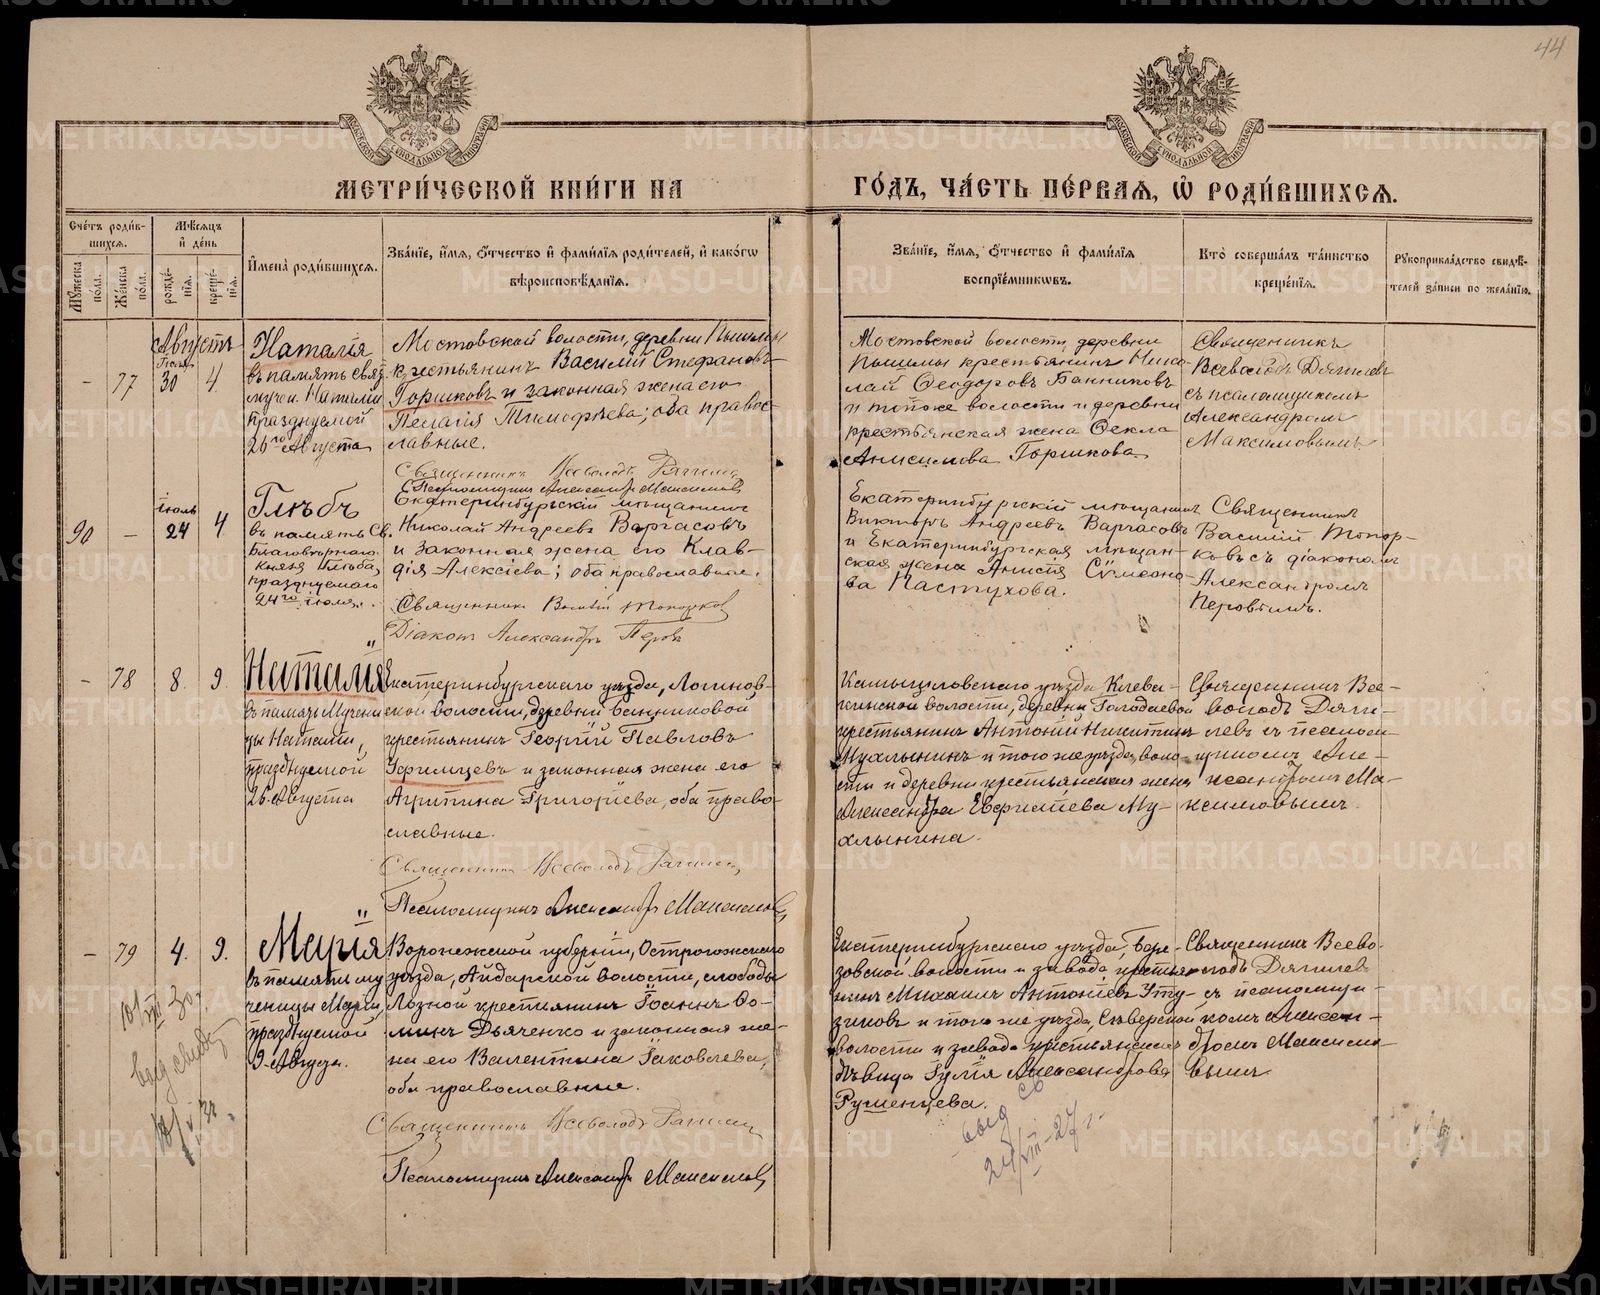 44
МЕТРИ́ЧЕСКОЙ КНИ́ГИ НА
ГО́ДЪ, ЧА́СТЬ ПЕ́РВАѦ, Ѡ҆ РОДИ́ВШИХСѦ.
Сче́тъ роди́в-
шихсѧ.
Мѣ́сѧцъ
и҆ де́нь
Мꙋ́жеска пола.
Же́нска по́ла.
рожде́-
нїѧ.
креще́-
нїѧ.
И҆мена̀ роди́вшихсѧ.
Зва́нїе, и҆́мѧ, ѻ҆́тчество и҆ фами́лїѧ роди́телей, и҆ како́гѡ
вѣроисповѣ́данїѧ.
Зва́нїе, и҆́мѧ, ѻ҆́тчество и҆ фами́лїѧ
воспрїе́мникѡвъ.
Кто̀ соверша́лъ та́инство
креще́нїѧ.
Рꙋкоприкла́дство свидѣ́-
телей за́писи по жела́нїю.
Августъ
Іюля
- 77 30 4.
Наталія
въ память свят.
мучен. Наталіи
празднуемой
26го Августа
Мостовской волости, деревни Пышмы
крестьянинъ Василій Стефановъ
Горшковъ и законная жена его
Пелагія Тимофѣева; оба право-
славные.
Священникъ Всеволодъ Дягилев
Псаломщикъ Александръ Максимов
Мостовской волости деревни
Пышмы крестьянинъ Нико-
лай Ѳеодоровъ Банниковъ
и тойже волости и деревни
крестьянская жена Ѳекла
Анисимова Горшкова.
Священникъ
Всеволодъ Дягилевъ
съ псаломщикомъ
Александромъ
Максимовымъ
90 - Іюль 24 4.
Глѣбъ
въ память Св.
Благовѣрнаго
Князя Глѣба,
празднуемаго
24го іюля.
Екатеринбургскій мѣщанинъ
Николай Андреевъ Варгасовъ
и законная жена его Клав-
дія Алексіева; оба православные.
Священникъ Василій Топорков
Діаконъ Александръ Перов
Екатеринбургскій мѣщанинъ
Викторъ Андреевъ Варгасовъ
и Екатеринбургская мѣщан-
ская жена Анисія Сѵмеоно-
ва Пастухова.
Священникъ
Василій Топор-
ковъ съ діакономъ
Александромъ
Перовымъ.
- 78 8. 9.
Наталія
въ память Мучени-
цы Наталіи,
празднуемой
26 Августа
Екатеринбургскаго уѣзда, Логинов-
ской волости, деревни Банниковой
крестьянинъ Георгій Павловъ
Уфимцевъ и законная жена его
Агрипина Григоріева, оба право-
славные.
Священникъ Всеволодъ Дягилев
Псаломщикъ Александръ Максимов
Камышловскаго уѣзда Клева-
кинской волости, деревни Голодаевой
крестьянинъ Антоній Никитинъ
Мухлынинъ и того же уѣзда, воло-
сти и деревни крестьянская жена
Александра Евфиміева Му-
хлынина.
Священникъ Все-
володъ Дяги-
левъ съ псалом-
щикомъ Але-
ксандромъ Ма-
ксимовымъ.
- 79 4. 9.
Марія
въ память му-
ченицы Маріи,
празднуемой
9 Августа.
Воронежской губерніи, Острогожскаго
уѣзда, Айдарской волости, слободы
Лозной крестьянинъ Іоаннъ Ѳо-
минъ Дьяченко и законная же-
на его Валентина Іаковлева,
оба православные.
Священникъ Всеволодъ Дягилев
Псаломщикъ Александръ Максимов
Екатеринбургскаго уѣзда, Бере-
зовской волости и завода крестья-
нинъ Михаилъ Антоніевъ Уту-
зиковъ и того же уѣзда, Сѣверской
волости и завода крестьянская
дѣвица Юлія Александрова
Румянцева.
Священникъ Всево-
лодъ Дягилевъ
съ псаломщи-
комъ Алексан-
дромъ Максимо-
вымъ
выд св
24/VIII-27 г.